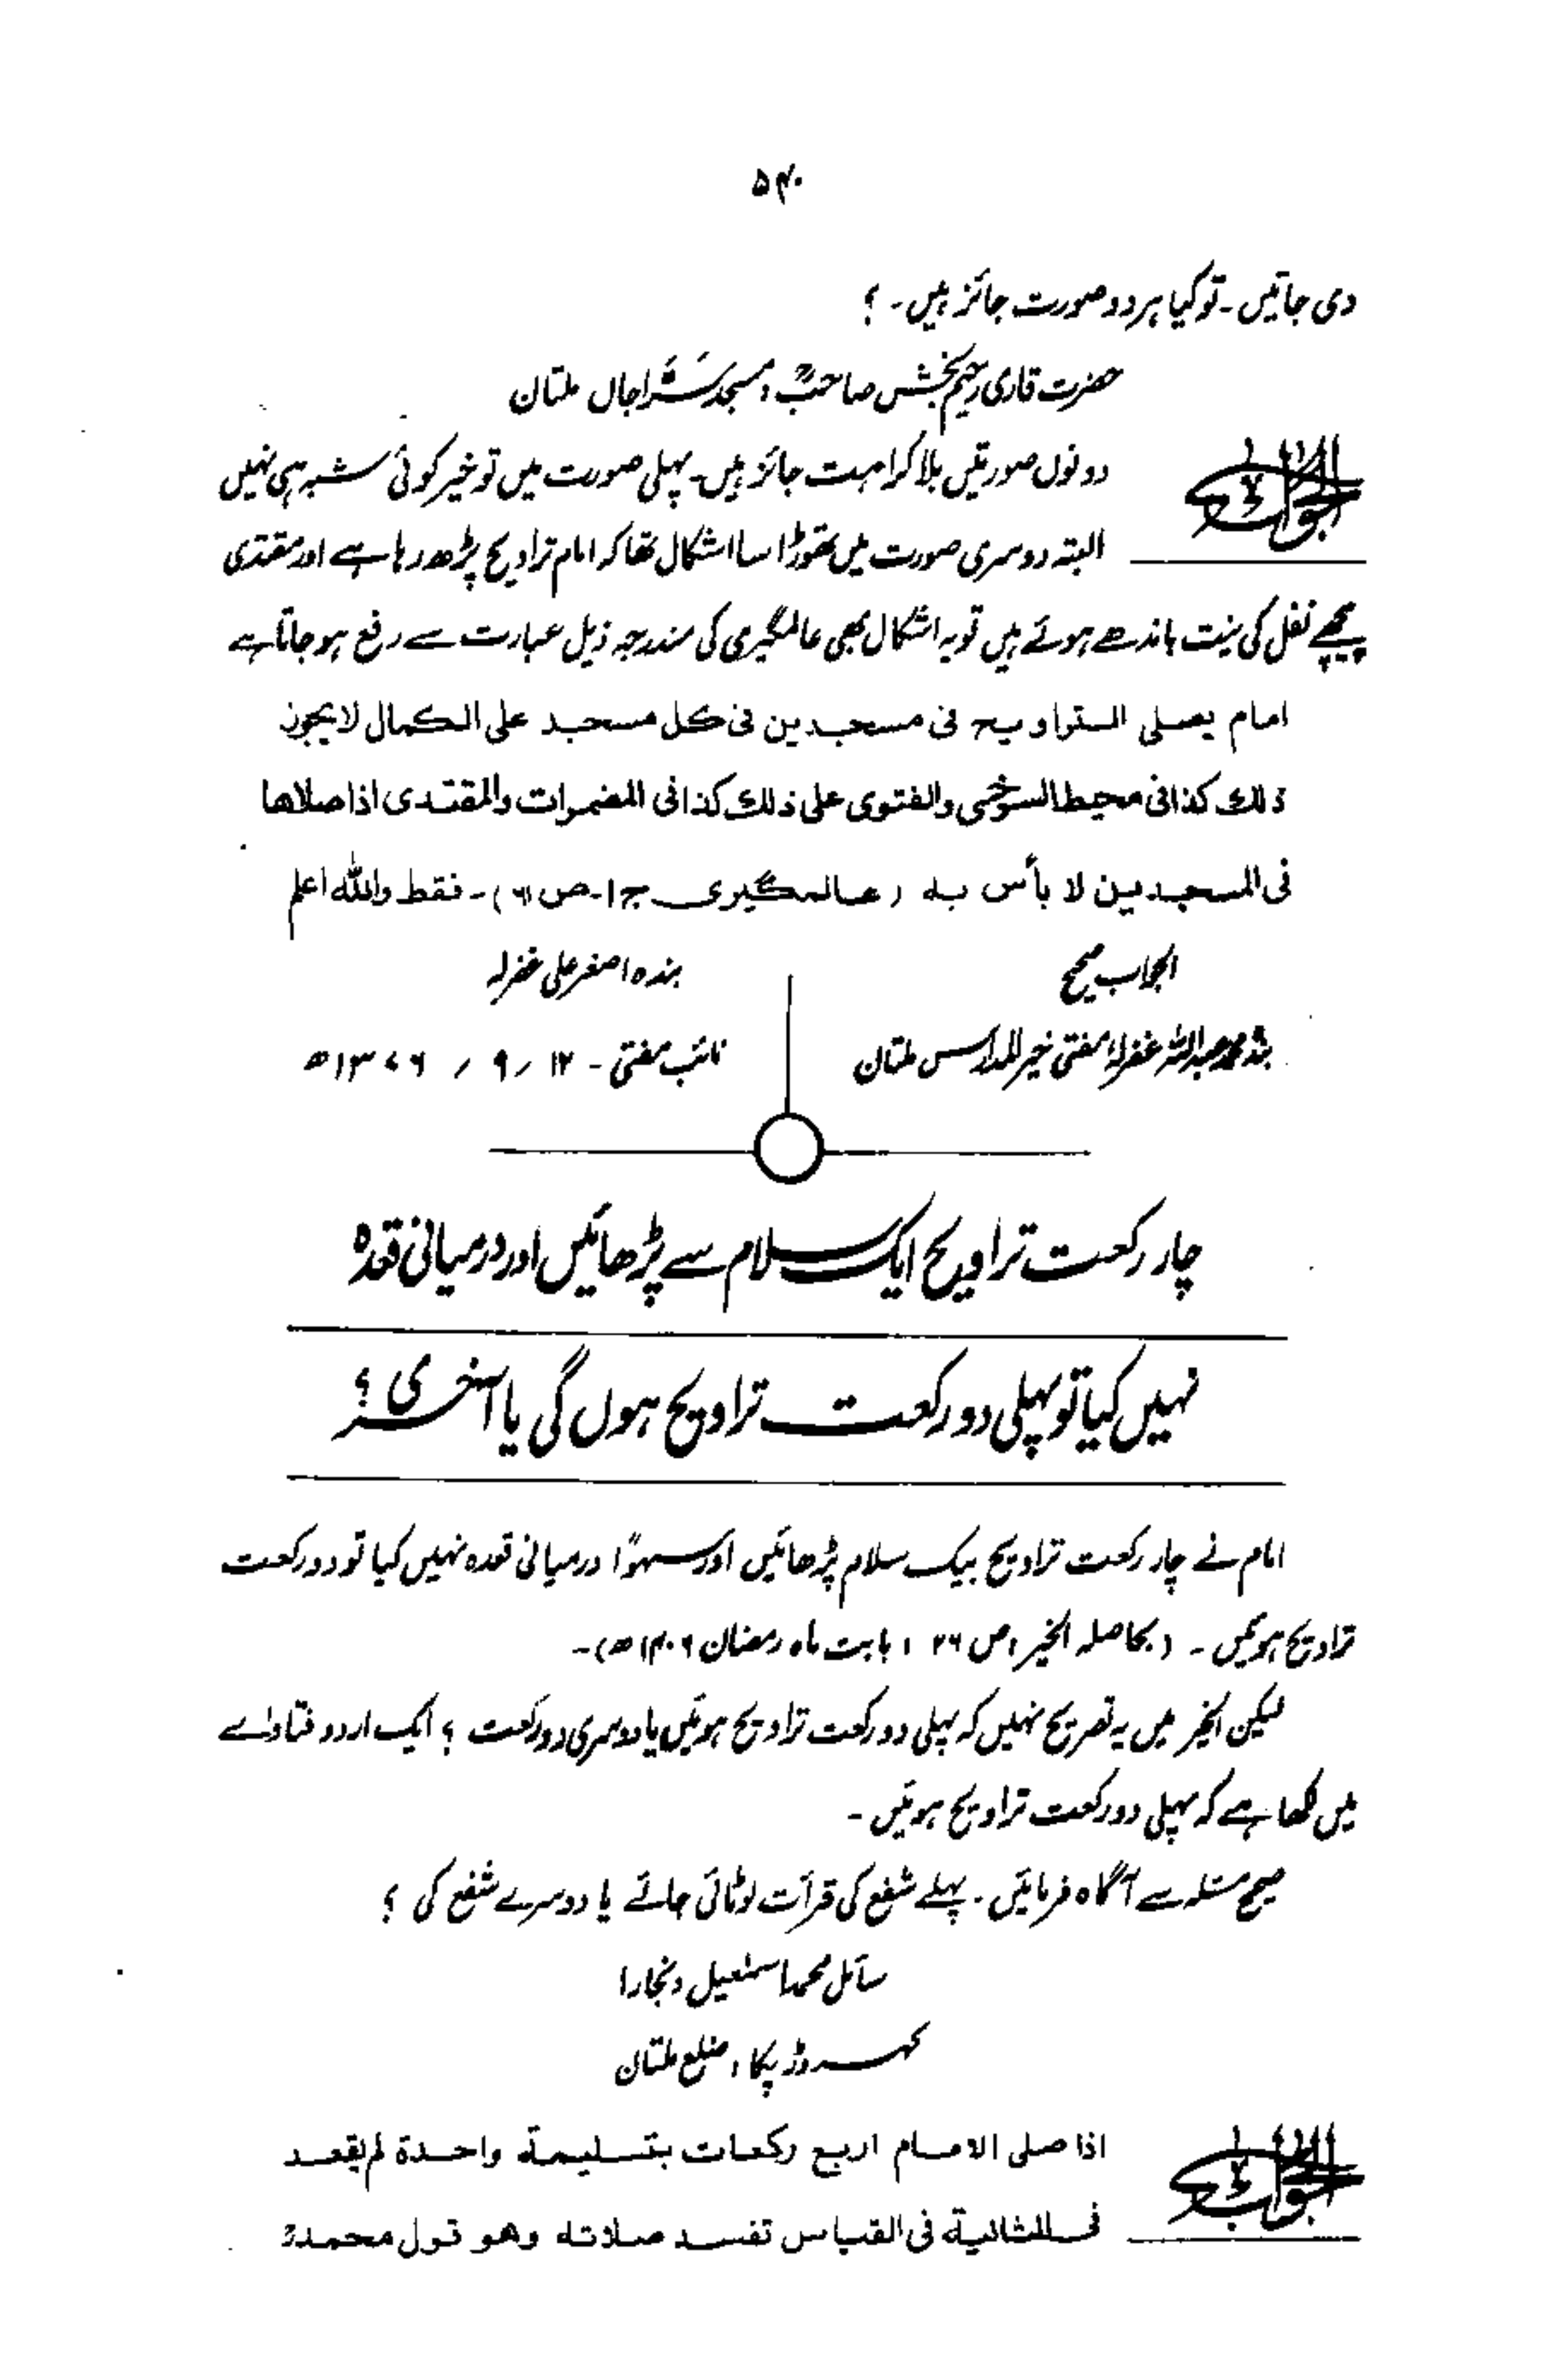 ۵۴۰
دی جائیں۔ تو کیا ہر دو صورت جائز ہیں۔ ؟
حضرت قاری رحیم بخش صاحبؒ، مسجد سراجاں ملتان
الجواب
دونوں صورتیں بلا کراہت جائز ہیں۔ پہلی صورت میں تو خیر کوئی شبہ ہی نہیں
البتہ دوسری صورت میں تھوڑا سا اشکال تھا کہ امام تراویح پڑھ رہا ہے اور مقتدی
پیچھے نفل کی نیت باندھے ہوئے ہیں تو یہ اشکال بھی عالمگیری کی مندرجہ ذیل عبارت سے رفع ہو جاتا ہے
امام یصلی التراویح فی مسجدین فی کل مسجد علی الکمال لا یجوز
ذلك کذا فی محیط السرخسی والفتوی علی ذلك کذا فی المضمرات والمقتدی اذا صلاها
فی المسجدین لا بأس به (عالمگیری ج۱۔ص)۔ فقط واللہ اعلم
الجواب صحیح
بندہ محمد عبداللہ غفرلہٗ مفتی خیر المدارس ملتان
بندہ اصغر علی غفرلہ
نائب مفتی ۔ ۱۲ / ۹ / ۱۳۷۶ھ
چار رکعت تراویح ایک سلام سے پڑھائیں اور درمیانی قعدہ
نہیں کیا تو پہلی دو رکعت تراویح ہوں گی یا آخری ؟
امام نے چار رکعت تراویح بیک سلام پڑھائیں اور سہوًا درمیانی قعدہ نہیں کیا تو دو رکعت
تراویح ہوئیں ۔ (بحاصلہ الخیر، ص ۳۶ ، بابت ماہ رمضان ۱۴۰۶ھ)۔
لیکن الخیر میں یہ تصریح نہیں کہ پہلی دو رکعت تراویح ہوئیں یا دوسری دو رکعت ؟ ایک اردو فتاوٰے
میں لکھا ہے کہ پہلی دو رکعت تراویح ہوئیں ۔
صحیح مسئلہ سے آگاہ فرمائیں ۔ پہلے شفع کی قرأت لوٹائی جائے یا دوسرے شفع کی ؟
سائل محمد اسمٰعیل
کہروڑ پکا ، ضلع ملتان
الجواب
اذا صلی الامام اربع رکعات بتسلیمة واحدة لم یقعد
فی الثانیة فی القیاس تفسد صلاته وهو قول محمدؒ